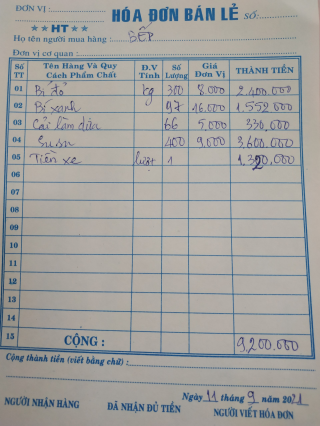 ĐƠN VỊ: HÓA ĐƠN BÁN LẺ SỐ:
★★HT★★
Họ tên người mua hàng: BẾP
Đơn vị cơ quan:
Số TT Tên Hàng Và Quy Cách Phẩm Chất Đ.V Tính Số Lượng Giá Đơn Vị THÀNH TIỀN
01 Bí đỏ kg 300 8.000 2.400.000
02 Bí xanh 97 16.000 1.552.000
03 Cải làm dưa 66 5.000 330.000
04 Su su 400 9.000 3.600.000
05 Tiền xe lượt 1 1.320.000
06
07
08
09
10
11
12
13
14
15 CỘNG: 9.200.000
Cộng thành tiền (viết bằng chữ):
Ngày 11 tháng 9 năm 2021
NGƯỜI NHẬN HÀNG ĐÃ NHẬN ĐỦ TIỀN NGƯỜI VIẾT HÓA ĐƠN